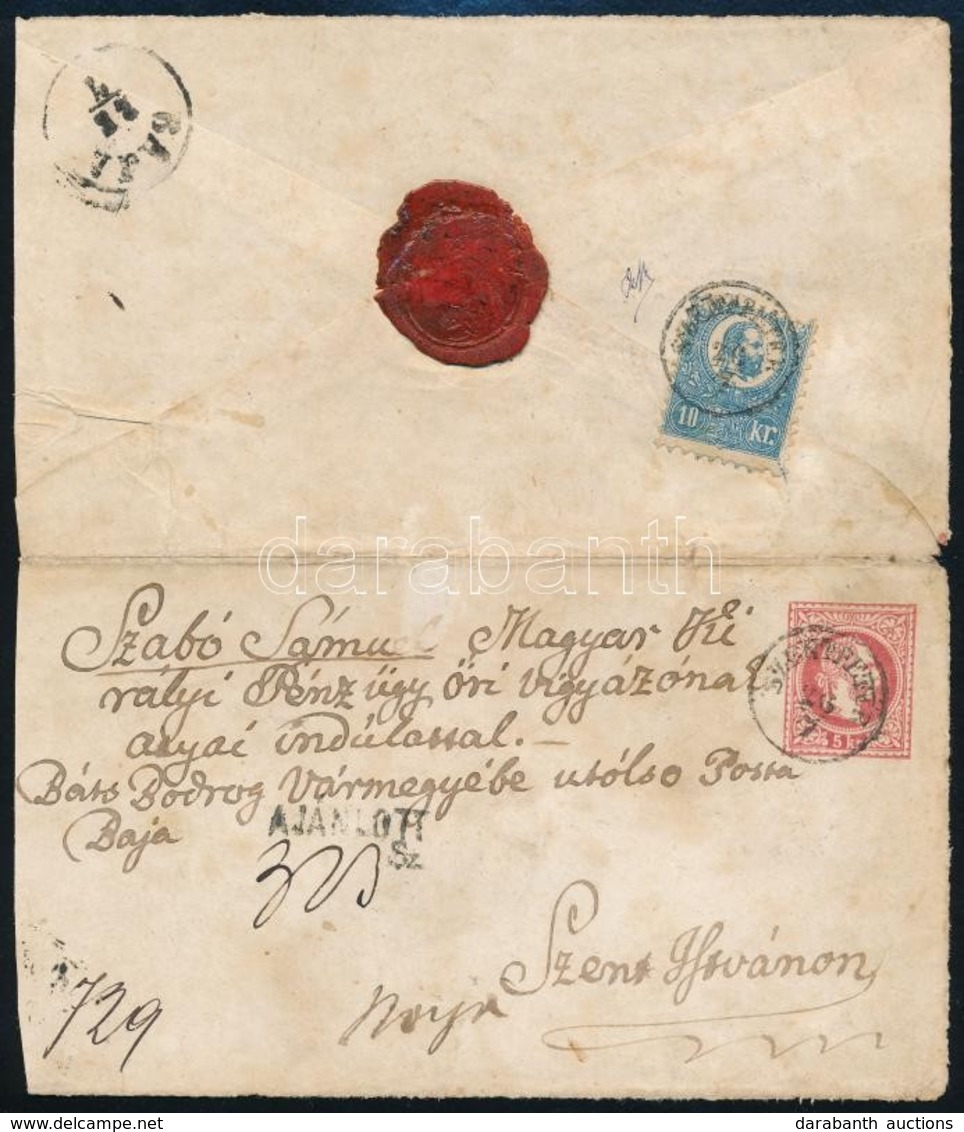 BAJA
22/7
10 kr.
darabanth
Szabó Sámuel Magyar Ki
rályi Pénz ügy őri vigyázónal
atyai indúlattal. —
Báts Bodrog Vármegyébe utólso Posta
Baja
AJÁNLOTT
Sz
5 kr
Szent Istvánon
729
darabanth auctions